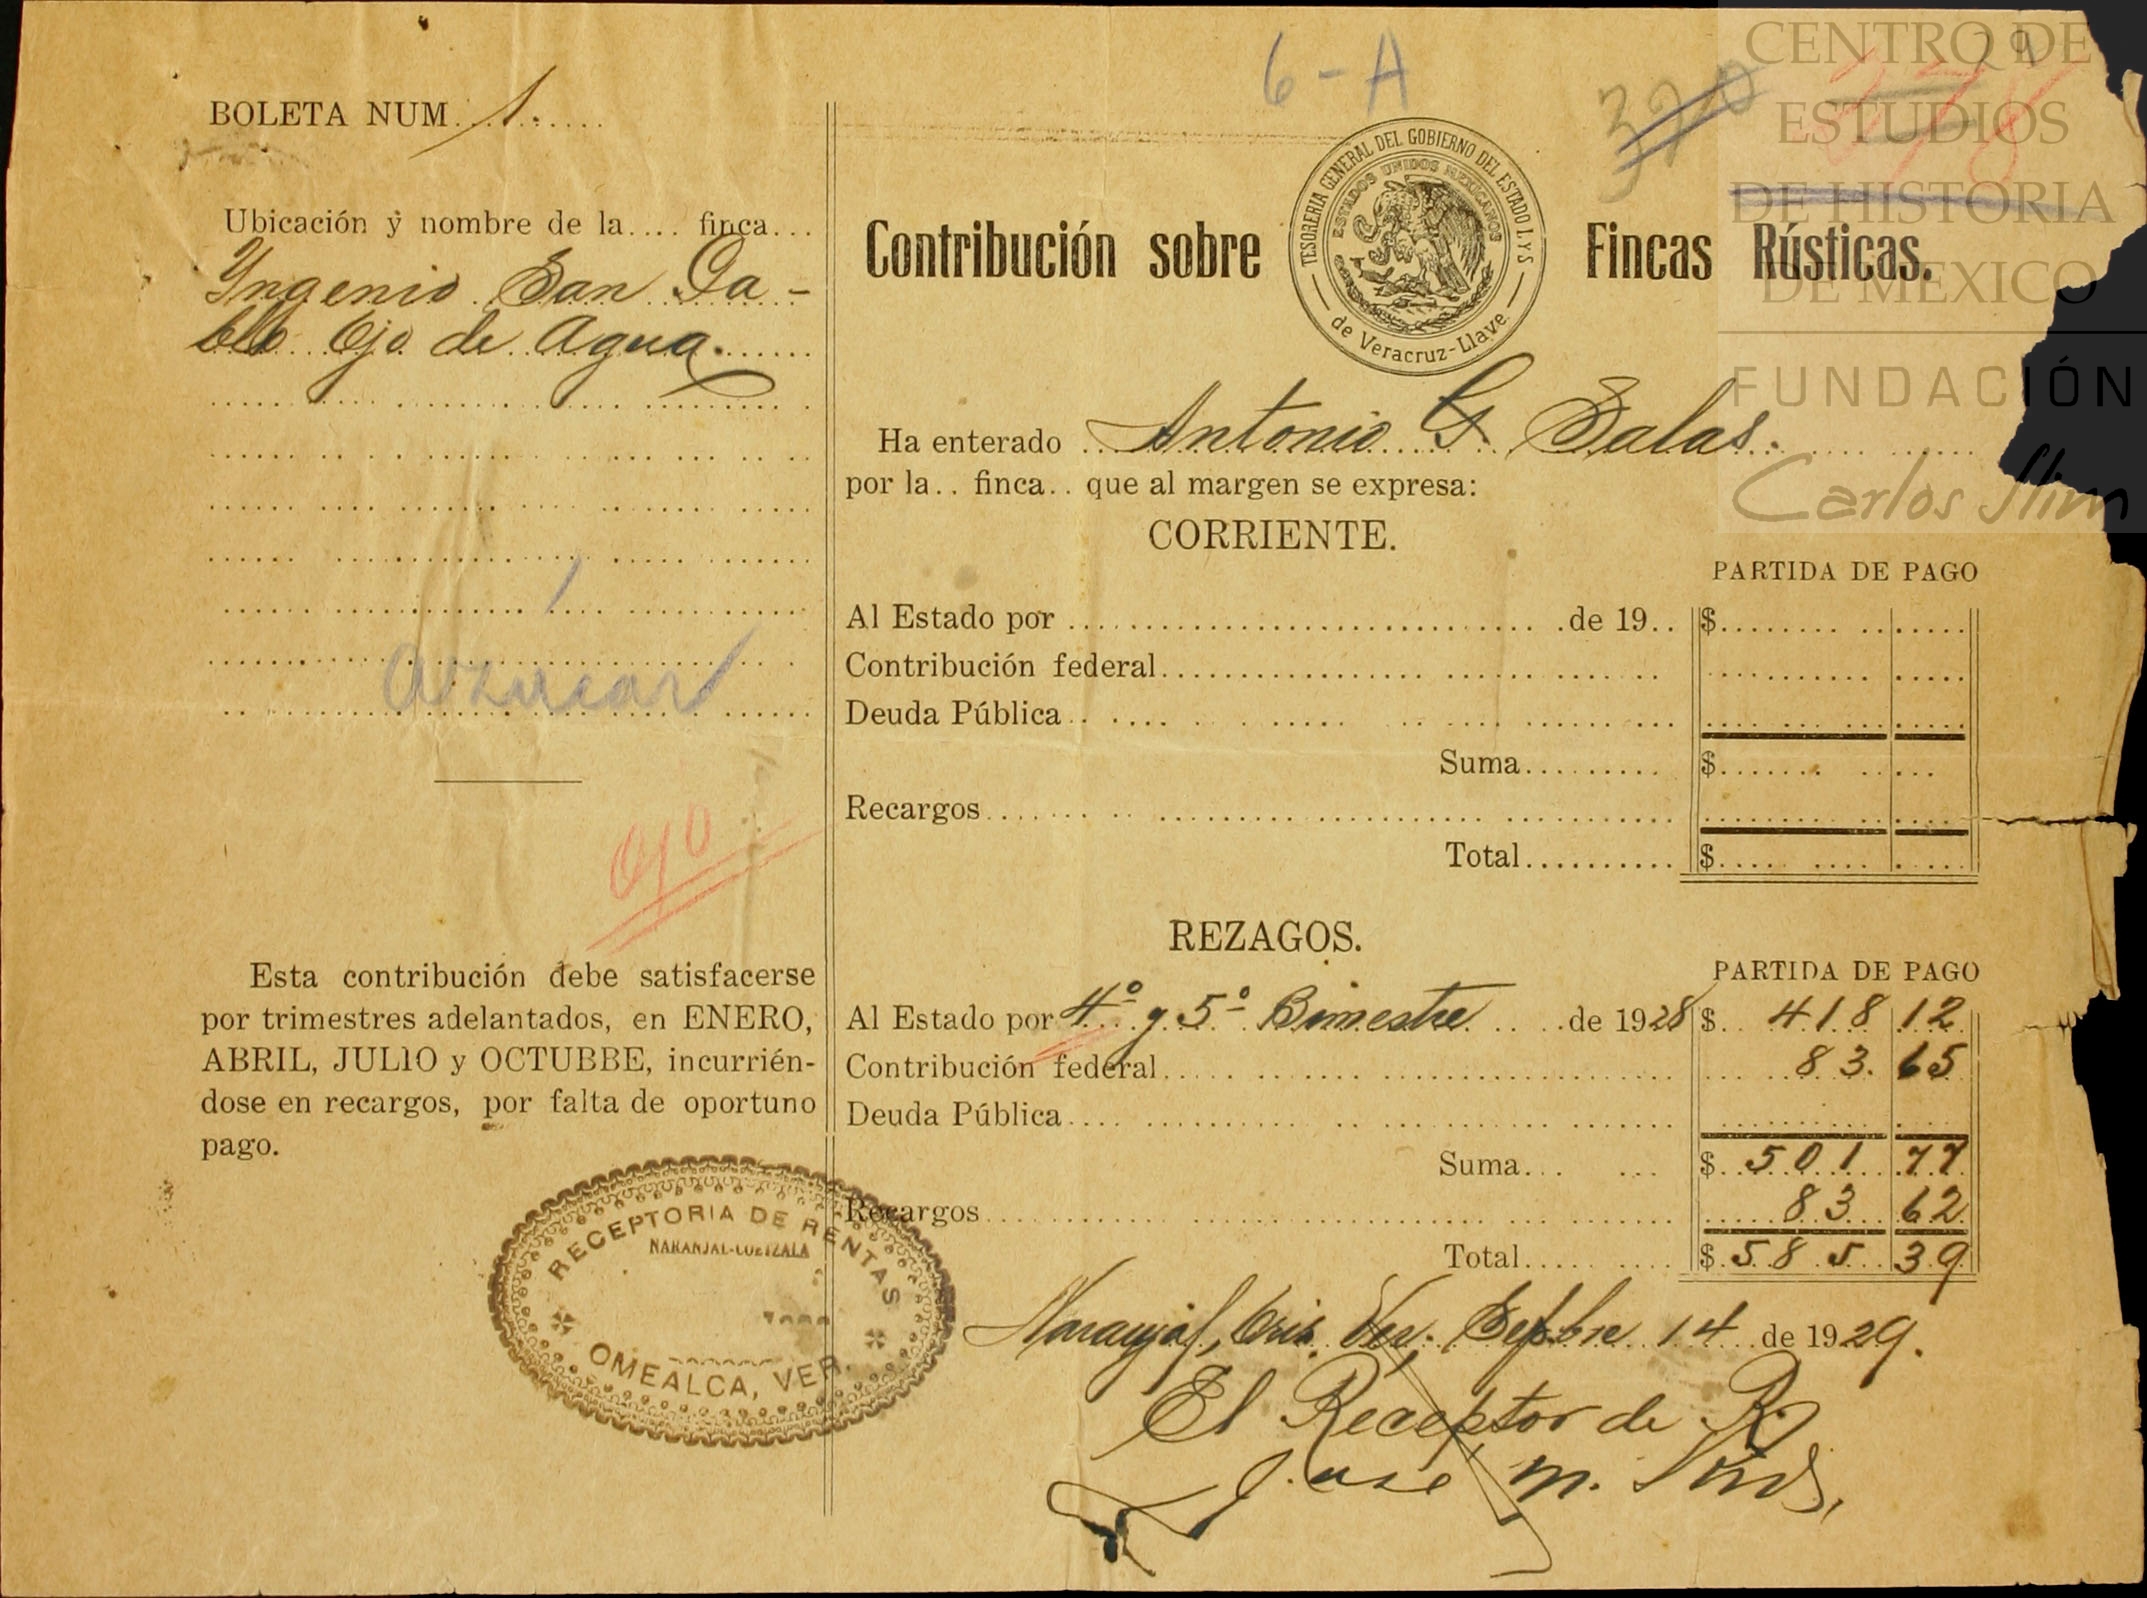 6-A
370
378
BOLETA NUM. 1.
Ubicación y nombre de la.... finca...
Ingenio San Pa-
blo Ojo de Agua.
azucar
ojo
Esta contribución debe satisfacerse
por trimestres adelantados, en ENERO,
ABRIL, JULIO y OCTUBBE, incurrién-
dose en recargos, por falta de oportuno
pago.
RECEPTORIA DE RENTAS
NARANJAL-COETZALA
OMEALCA, VER.
Contribución sobre Fincas Rústicas.
TESORERIA GENERAL DEL GOBIERNO DEL ESTADO L y S
ESTADOS UNIDOS MEXICANOS
de Veracruz-Llave.
Ha enterado Antonio G. Salas.
por la.. finca.. que al margen se expresa:
CORRIENTE.
PARTIDA DE PAGO
Al Estado por de 19.. $
Contribución federal
Deuda Pública
Suma $
Recargos
Total $
REZAGOS.
PARTIDA DE PAGO
Al Estado por 4º y 5º Bimestre de 1928 $ 418 12
Contribución federal 83. 65
Deuda Pública
Suma $ 501 77
Recargos 83 62
Total $ 585 39
Naranjal, Ver. Sepbre 14 de 1929.
El Receptor de R.
José M.
CENTRO DE
ESTUDIOS
DE HISTORIA
DE MEXICO
FUNDACIÓN
Carlos Slim